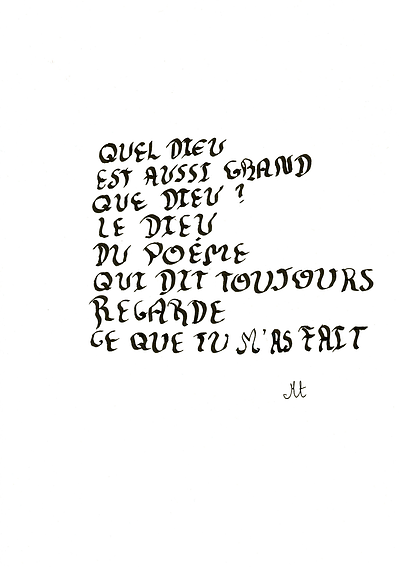 QUEL DIEU
EST AUSSI GRAND
QUE DIEU ?
LE DIEU
DU POÉME
QUI DIT TOUJOURS
REGARDE
CE QUE TU M'AS FAIT